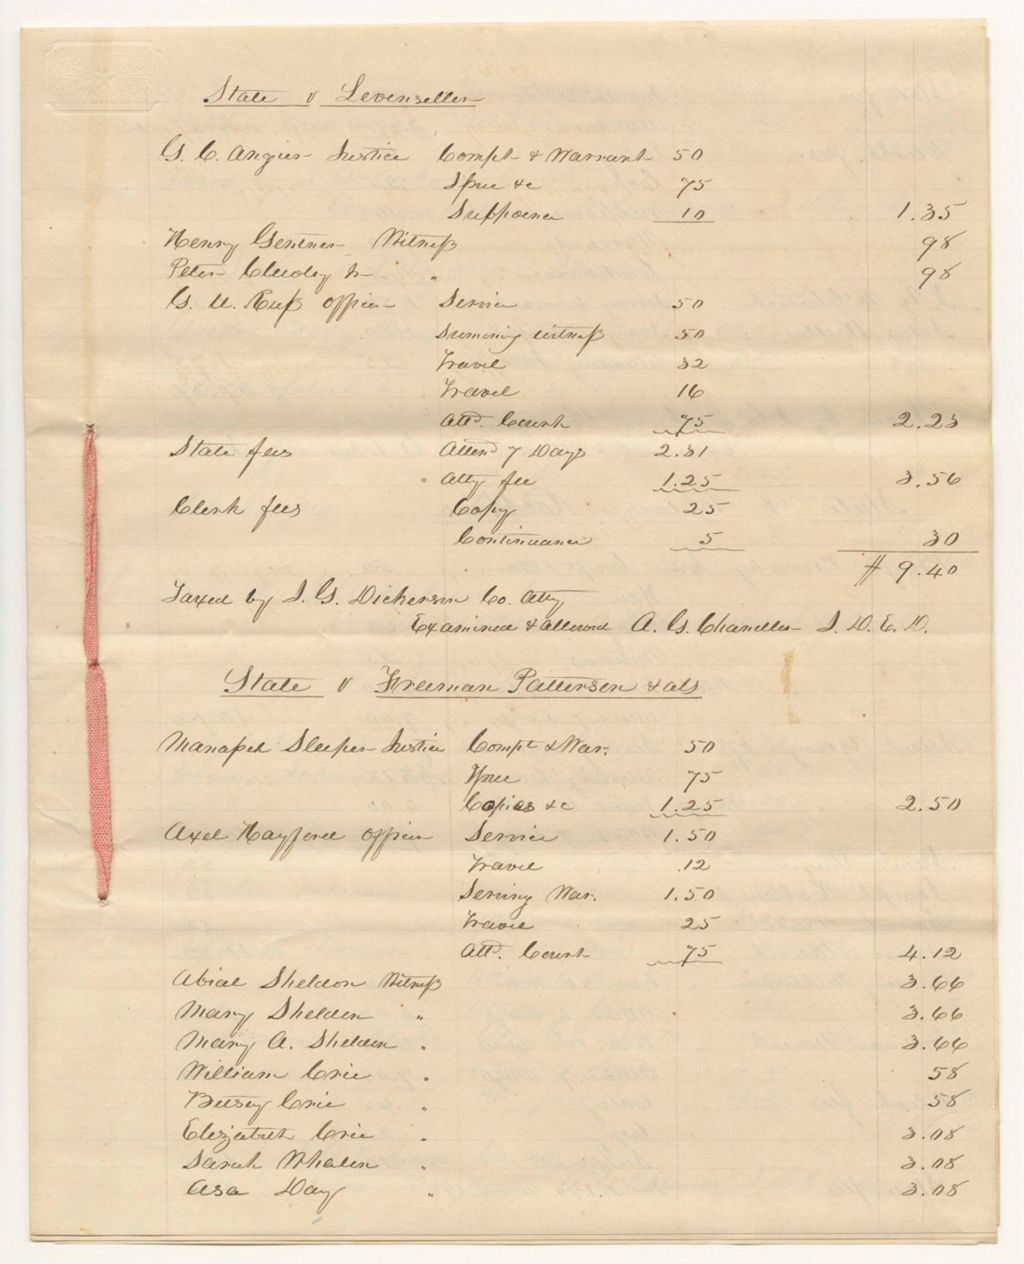 State v Levenseller
G. C. Angier Justice Compt & Warrant 50
&c 75
Subphoena 10 1.35
Henry Gentner Witneſs 98
Peter Jr " 98
G. U. Ruſs officer Service 50
Sumoning witneſs 50
Travil 32
Travel 16
Attd. Court 75 2.23
State fees Attend 7 Days 2.31
Atty fee 1.25 3.56
Clerk fees Copy 25
Continuance 5 30
$ 9.40
Taxed by J. G. Dickerson Co. Atty
Examined & allowed A. G. Chandler J. D. C. D.
State v Freeman Patterson & als
Manaſseh Sleeper Justice Compt & War. 50
75
Copies &c 1.25 2.50
Axel Hayford officer Service 1.50
Travel .12
Serving War. 1.50
Travel 25
Attd. Court 75 4.12
Abial Sheldon Witneſs 3.66
Mary Sheldon " 3.66
Mary A. Sheldon " 3.66
William Crie " 58
Betsey Crie " .58
Elizabeth Crie " 3.08
Sarah Whalen " 3.08
Asa Day " 3.08